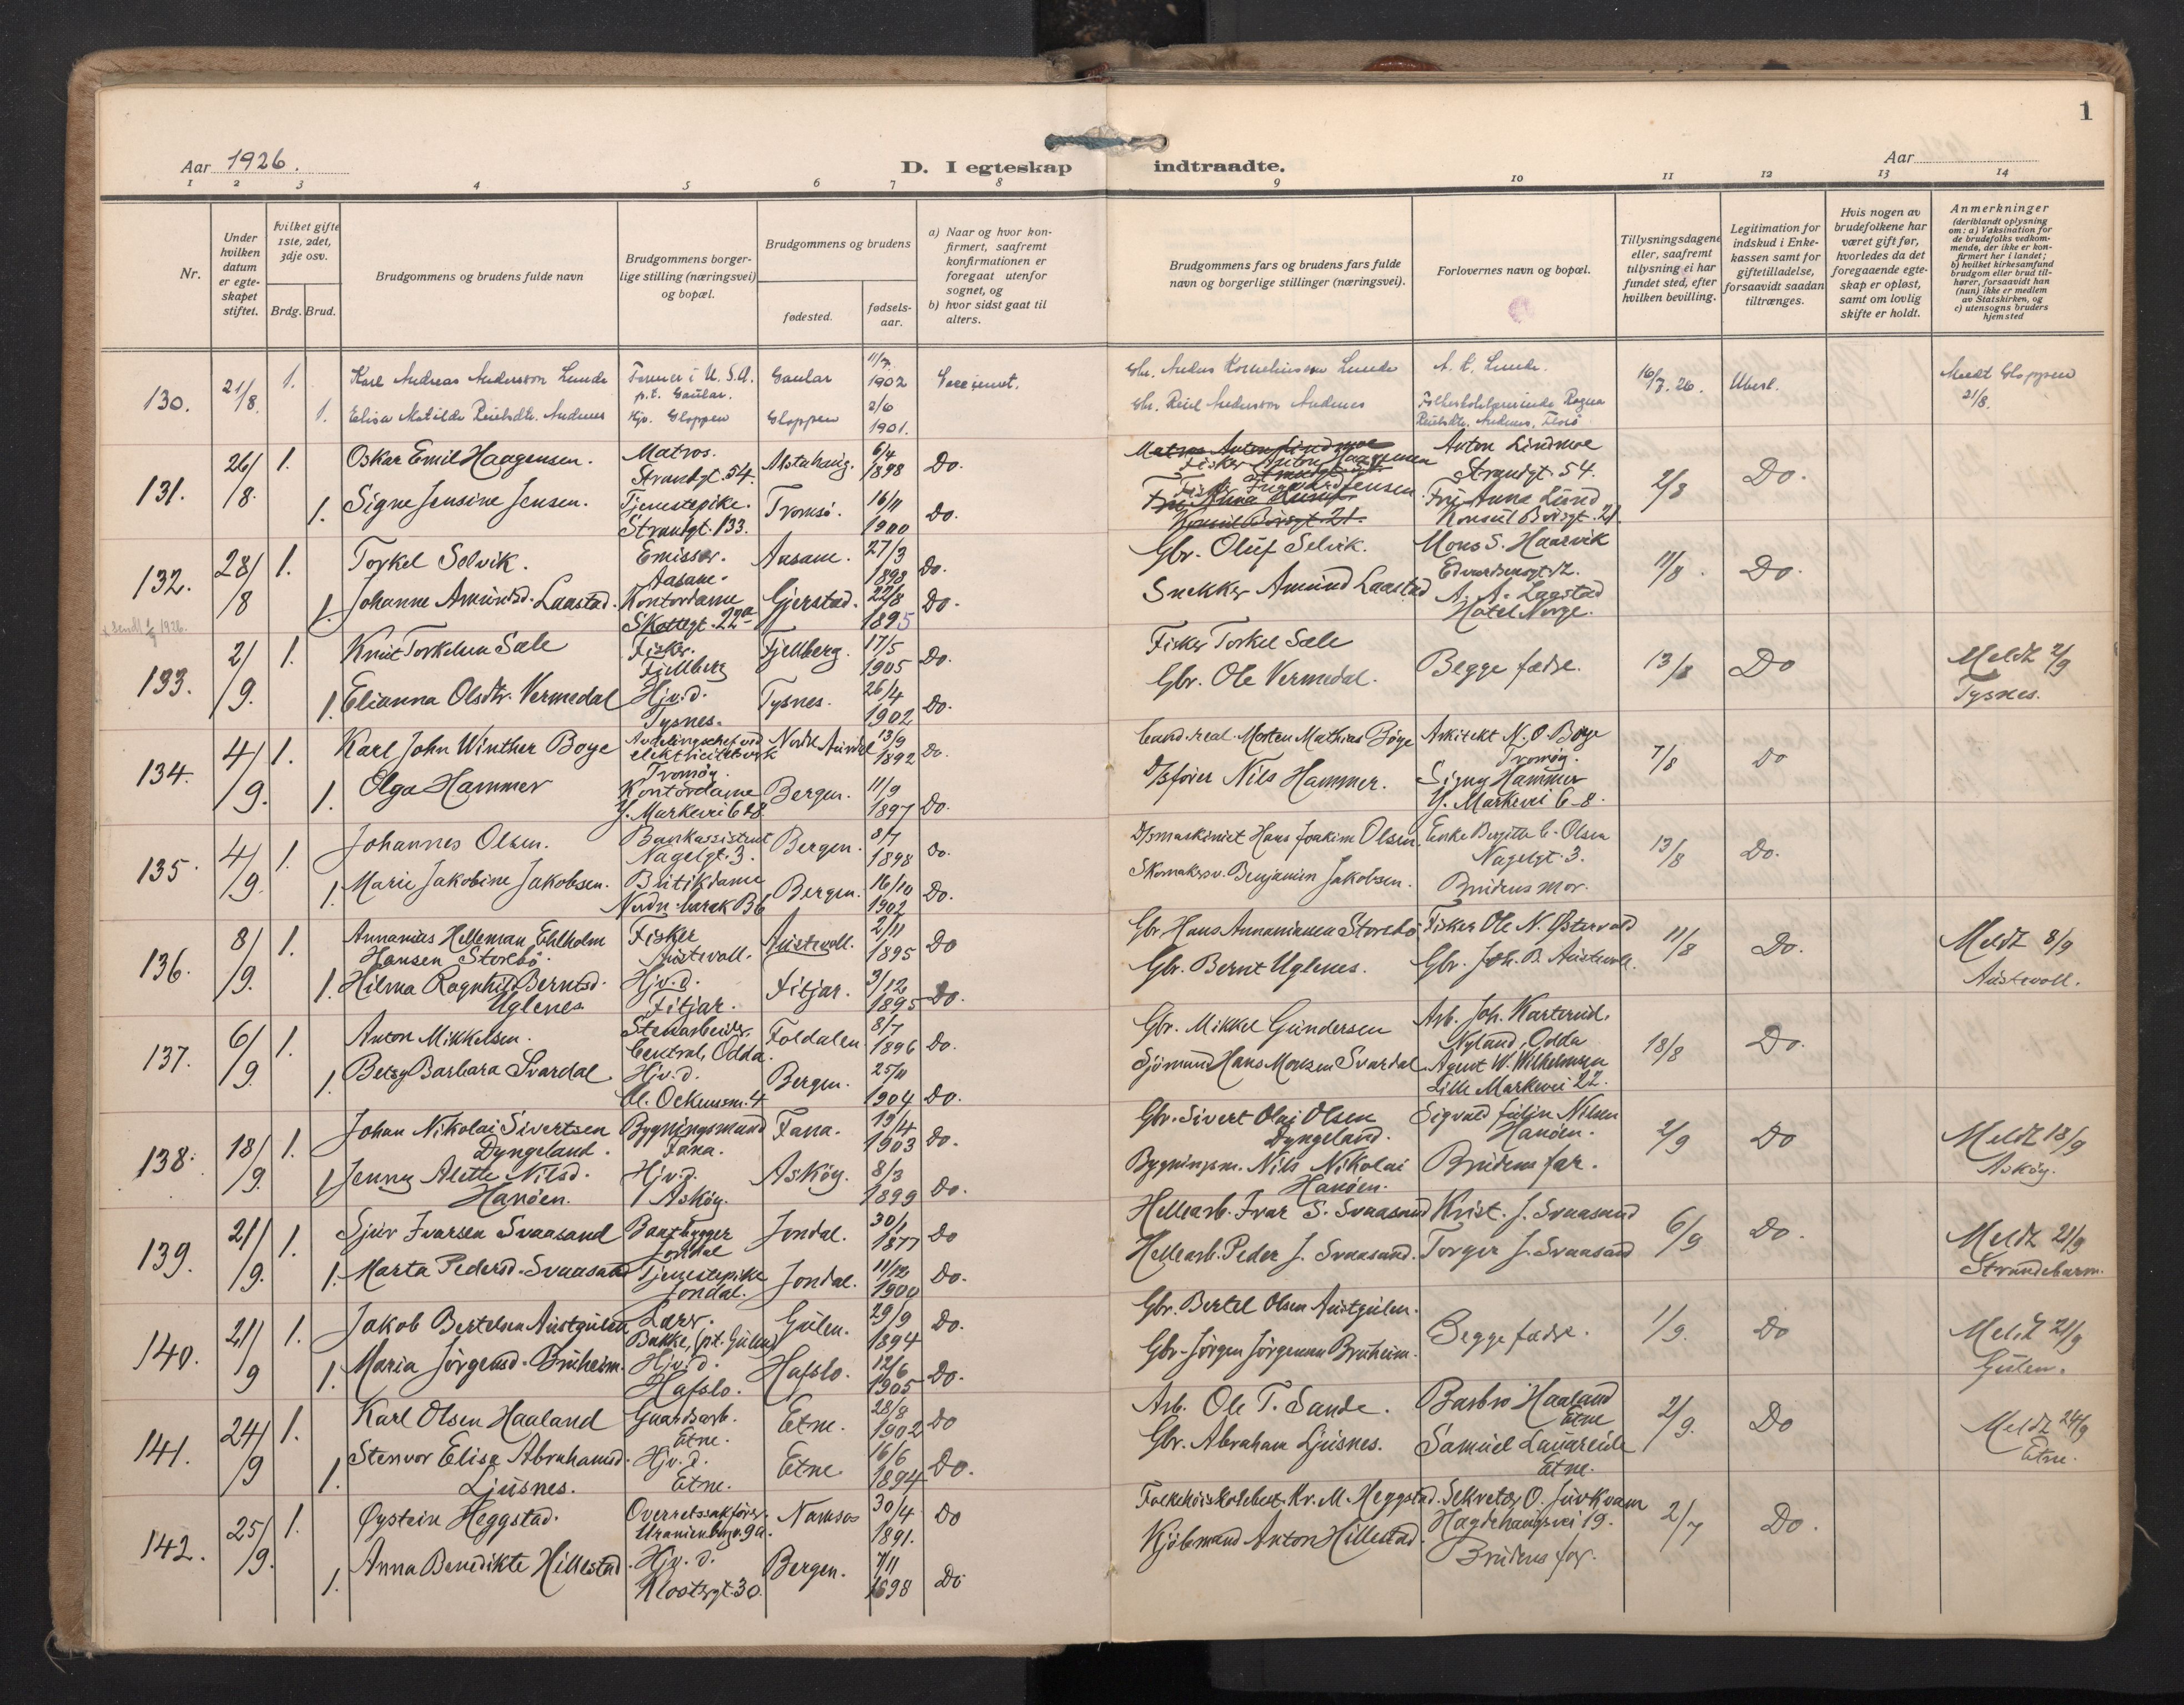 1
Aar 1926.
D. I egteskap indtraadte.
Aar
1 2 3 4 5 6 7 8 9 10 11 12 13 14
Nr.
Under hvilken datum er egte-skapet stiftet.
hvilket gifte 1ste, 2det, 3dje osv.
Brdg. Brud.
Brudgommens og brudens fulde navn
Brudgommens borger-lige stilling (næringsvei) og bopæl.
Brudgommens og brudens
fødested.
fødsels-aar.
a) Naar og hvor kon-firmert, saafremt konfirmationen er foregaat utenfor sognet, og
b) hvor sidst gaat til alters.
Brudgommens fars og brudens fars fulde navn og borgerlige stillinger (næringsvei).
Forlovernes navn og bopæl.
Tillysningsdagene eller, saafremt tillysning ei har fundet sted, efter hvilken bevilling.
Legitimation for indskud i Enke-kassen samt for giftetilladelse, forsaavidt saadan tiltrænges.
Hvis nogen av brudefolkene har været gift før, hvorledes da det foregaaende egte-skap er opløst, samt om lovlig skifte er holdt.
Anmerkninger
(deriblandt oplysning om: a) Vaksination for de brudefolks vedkom-mende, der ikke er kon-firmert her i landet; b) hvilket kirkesamfund brudgom eller brud til-hører, forsaavidt han (hun) ikke er medlem av Statskirken, og c) utensogns bruders hjemsted
130. 21/8. 1. Karl Andreas Anderson Lunde Farmer i U.S.A. p.t. Gaular. Gaular 11/7. 1902 Gbr. Anders Kornelius Lunde 16/7. 26. Uberl. Meldt Gloppen 21/8.
1. Elisa Matilde Andenes Hjv. Gloppen Gloppen 2/6 1901. Gbr. Andenes
131. 26/8. 1. Oskar Emil Haagensen. Matros. Strandgt. 54. Alstahaug. 6/4 1898 Do. Fisker Anton Haagensen Anton Lindmoe Strandgt. 54. 2/8 Do.
1. Signe Jensine Jensen. Tjenestepike. Strandgt. 133. Tromsö. 16/11 1900 Do. Jensen. Fru Anna Lund Konsul Börsgt. 21.
132. 28/8 1. Torkel Selvik. Emissær. Aasane. Aasane. 27/3 1898 Do. Gbr. Oluf Selvik. Mons S. Haarvik 11/8. Do.
1. Johanne Amundsd. Laastad. Kontordame Skottegt. 22a Gjerstad. 22/8 1895 Do. Snekker Amund Laastad A. A. Laastad Hotel Norge.
133. 2/9. 1. Knut Torkelsen Sæle Fisker. Fjellberg Fjellberg. 17/5 1905 Do. Fisker Torkel Sæle Begge fædre. 13/8 Do Meldt 2/9 Tysnes.
1. Elianna Olsdtr. Vermedal Hjv. d. Tysnes. Tysnes. 26/4 1902 Do. Gbr. Ole Vermedal.
134. 4/9. 1. Karl John Winther Böye Avdelingschef ved elektricitetsverk Tromöy. 13/9 1892 Do. Cand. real. Morten Mathias Böye Arkitekt N. O. Böye Tromöy. 7/8 Do
1. Olga Hammer Kontordame Y. Markevei 6 & 8. Bergen. 11/9 1897 Do. D/sförer Nils Hammer. Signy Hammer Y. Markevei 6-8.
135. 4/9. 1. Johannes Olsen. Bankassistent Nagelgt. 3. Bergen. 8/7 1898 Do. D/smaskinist Hans Joakim Olsen. Enke Bergitte C. Olsen Nagelgt. 3. 13/8 Do.
1. Marie Jakobine Jakobsen. Butikdame Nordn. barak B6 Bergen. 16/10 1902 Do. Skomakersv. Benjamin Jakobsen. Brudens mor.
136. 8/9. 1. Annanias Helleman Ehlholm Hansen Storebö. Fisker Austevoll. Austevoll. 2/11 1895 Do Gbr. Hans Annaniassen Storebö Fisker Ole N. Östervold 11/8 Do. Meldt 8/9 Austevoll.
1. Hilma Ragnhild Berntsd. Uglenes Hjv. d. Fitjar. Fitjar. 3/12 1895 Do. Gbr. Bernt Uglenes. Gbr. Joh. B. Austevoll.
137. 6/9 1. Anton Mikkelsen. Stenarbeider. Central, Odda. Foldalen 8/7 1896 Do. Gbr. Mikkel Gundersen Arb. Joh. Karterud, Nyland, Odda 18/8 Do.
1. Betsy Barbara Svardal Hjv. d. Bergen. 25/11 1904 Do. Sjömand Hans Monsen Svardal. Agent W. Wilhelmsen Lille Markevei 22.
138. 18/9. 1. Johan Nikolai Sivertsen Dyngeland. Bygningsmand Fana. Fana. 13/4 1903 Do. Gbr. Sivert Olai Olsen Dyngeland. Sigvald Julin Nilsen Hanöen. 2/9 Do Meldt 18/9 Asköy.
1. Jenny Alette Nilsd. Hanöen. Hjv. d. Asköy. Asköy. 8/3 1899 Do. Bygningsm. Nils Nikolai Hanöen. Brudens far.
139. 21/9. 1. Sjur Ivarsen Svaasand Baatbygger Jondal Jondal. 30/1 1877 Do Hellearb. Ivar S. Svaasand Krist. J. Svaasand 6/9 Do. Meldt 21/9 Strandebarm.
1. Marta Pedersd. Svaasand Tjenestepike Jondal. Jondal. 11/12 1900 Do. Hellearb. Peder J. Svaasand. Torger J. Svaasand
140. 21/9 1. Jakob Bertelsen Austgulen Lærer. Bakke, (pt. Gulen) Gulen. 29/9 1894 Do. Gbr. Bertel Olsen Austgulen. Begge fædre. 1/9. Do Meldt 21/9 Gulen.
1. Maria Jörgensd. Bruheim. Hjv. d. Hafslo. Hafslo. 12/6 1905 Do. Gbr. Jörgen Jörgensen Bruheim.
141. 24/9 1. Karl Olsen Haaland Gaardsarb. Etne. Etne. 28/8 1902 Do Arb. Ole T. Sande. Barbro Haaland Etne 2/9. Do Meldt 24/9 Etne.
1. Stenvor Elise Abrahamsd. Ljusnes. Hjv. d. Etne. Etne. 16/6 1894 Do. Gbr. Abraham Ljusnes. Samuel Lauareide Etne.
142. 25/9. 1. Øystein Heggstad. Overretssakförer. Uranienborgv. 9a. Namsos 30/4 1891. Do Kr. M. Heggstad. Sekretær O. Juvkvam Hagdehaugsvei 19. 2/7 Do.
1. Anna Benedikte Hillestad. Hjv. d. Klostergt. 30. Bergen. 7/11 1898 Do Kjöbmand Anton Hillestad. Brudens far.